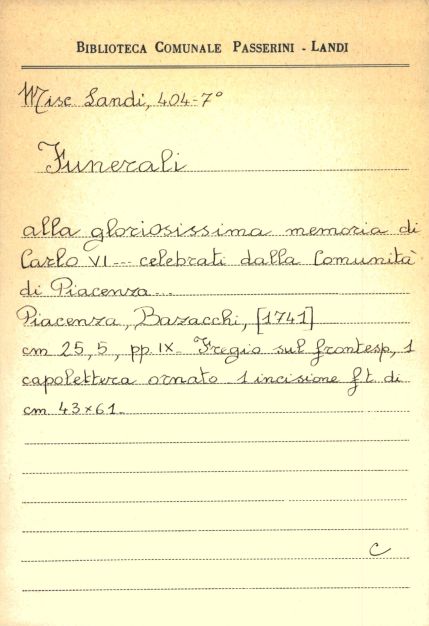 BIBLIOTECA COMUNALE PASSERINI - LANDI
Misc Landi, 404-7°
Funerali
alla gloriosissima memoria di
Carlo VI --- celebrati dalla Comunità
di Piacenza...
Piacenza, Bazacchi, [1741]
cm 25,5, pp. IX. Fregio sul frontesp, 1
capolettera ornato 1 incisione f.t. di
cm 43x61.
C